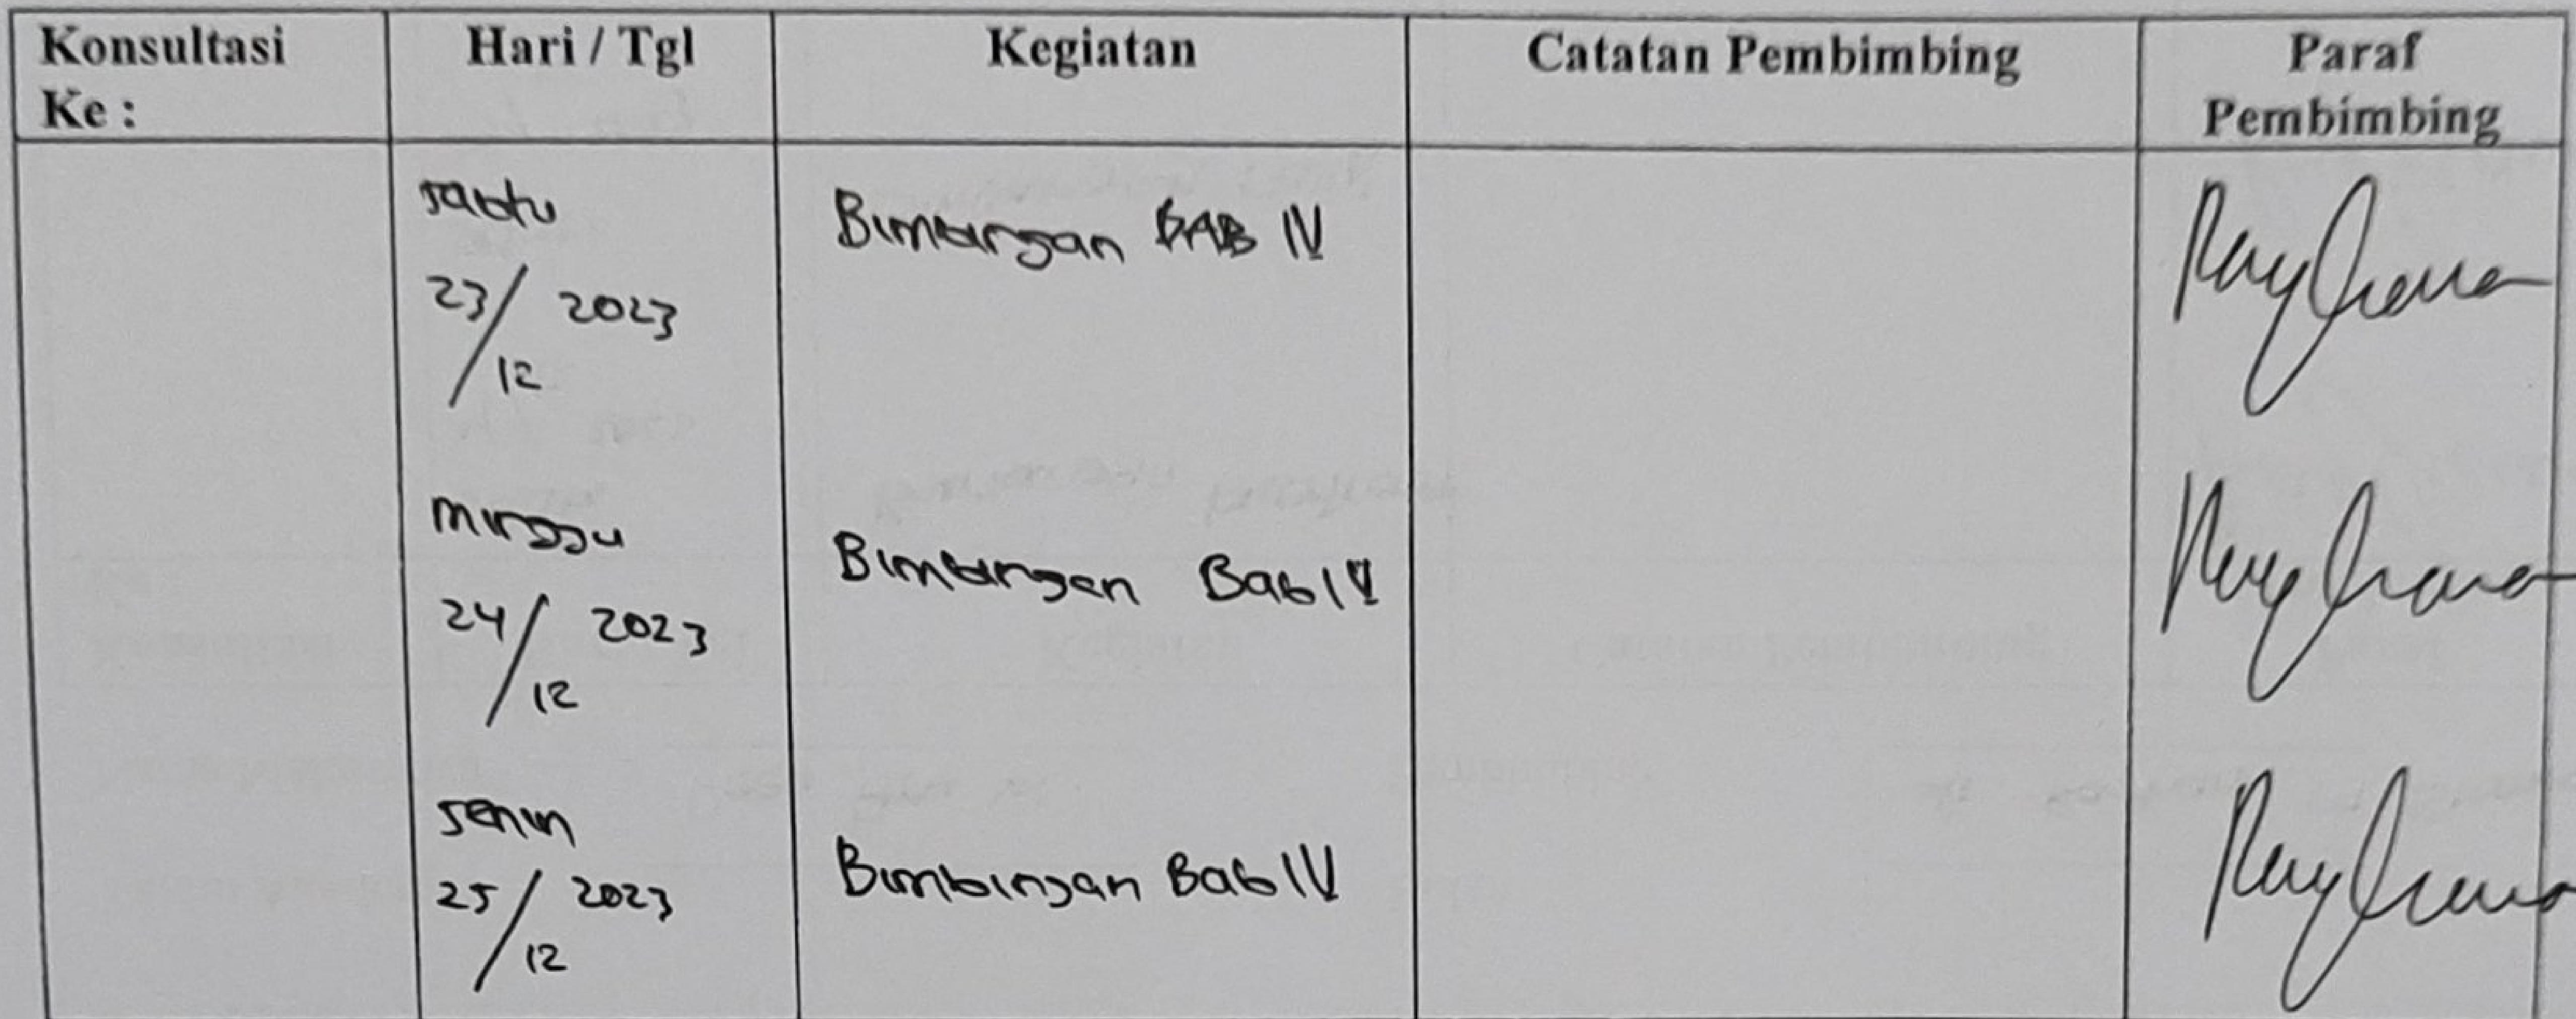 Konsultasi Ke : Hari / Tgl Kegiatan Catatan Pembimbing Paraf Pembimbing
sabtu
23/12 2023
Bimbingan BAB IV
minggu
24/12 2023
Bimbingan Bab IV
senin
25/12 2023
Bimbingan Bab IV